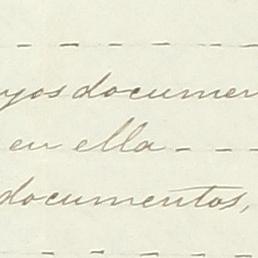 yos documen
en ella - - -
documentos,